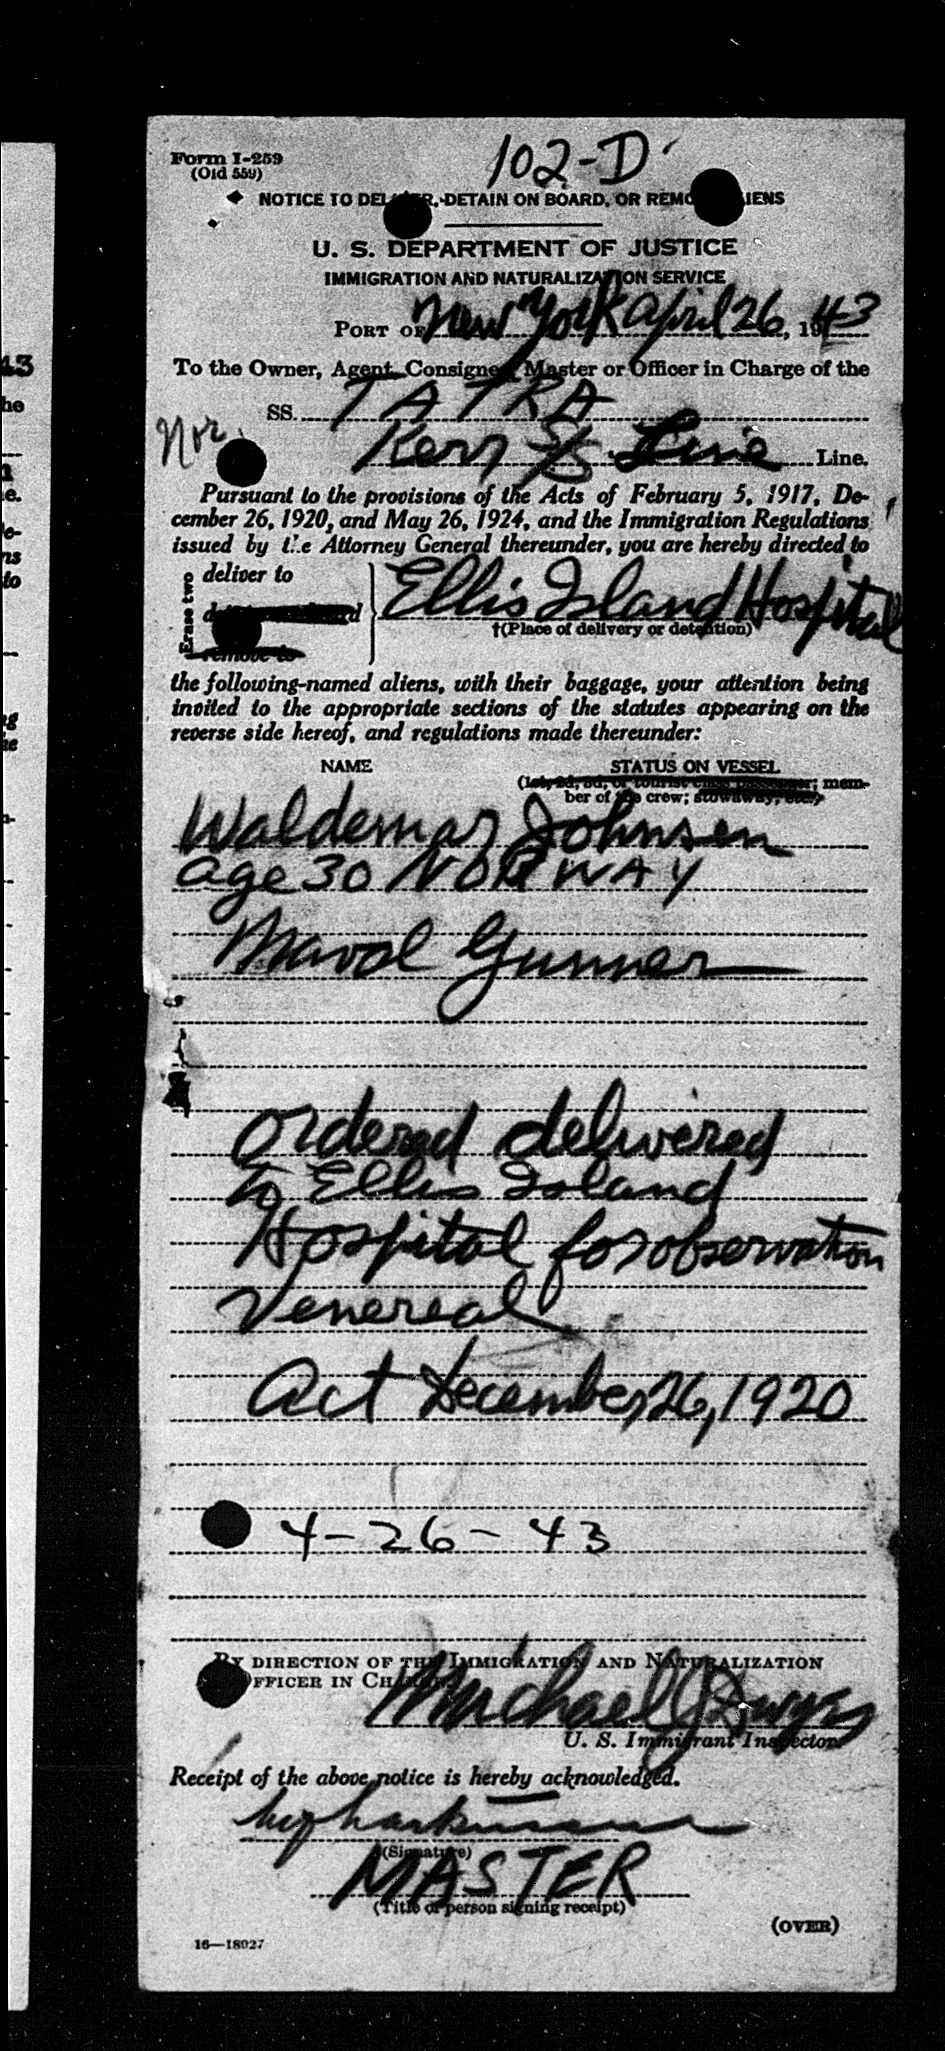 102-D
Form I-259
(Old 559)
NOTICE TO DELIVER, DETAIN ON BOARD, OR REMOVE ALIENS
U. S. DEPARTMENT OF JUSTICE
IMMIGRATION AND NATURALIZATION SERVICE
PORT OF New York April 26, 1943
To the Owner, Agent, Consignee, Master or Officer in Charge of the
SS. TATRA
Nor.
Kerr S/S Line Line.
Pursuant to the provisions of the Acts of February 5, 1917, De-
cember 26, 1920, and May 26, 1924, and the Immigration Regulations
issued by the Attorney General thereunder, you are hereby directed to
Erase two
deliver to
remove to
Ellis Island Hospital
†(Place of delivery or detention)
the following-named aliens, with their baggage, your attention being
invited to the appropriate sections of the statutes appearing on the
reverse side hereof, and regulations made thereunder:
NAME STATUS ON VESSEL
(1st, 2d, 3d, or tourist class passenger; mem-
ber of the crew; stowaway, etc.)
Waldemar Johnsen
age 30 NORWAY
Naval Gunner
Ordered delivered
to Ellis Island
Hospital for observation
Venereal
Act December 26, 1920
4-26-43
BY DIRECTION OF THE IMMIGRATION AND NATURALIZATION
OFFICER IN CHARGE
Michael J Dwyer
U. S. Immigrant Inspector.
Receipt of the above notice is hereby acknowledged.
(Signature)
MASTER
(Title of person signing receipt)
(OVER)
16—18027